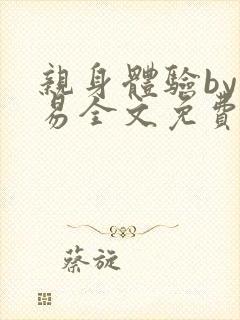 親身體驗by
易全文免費
蔡旋